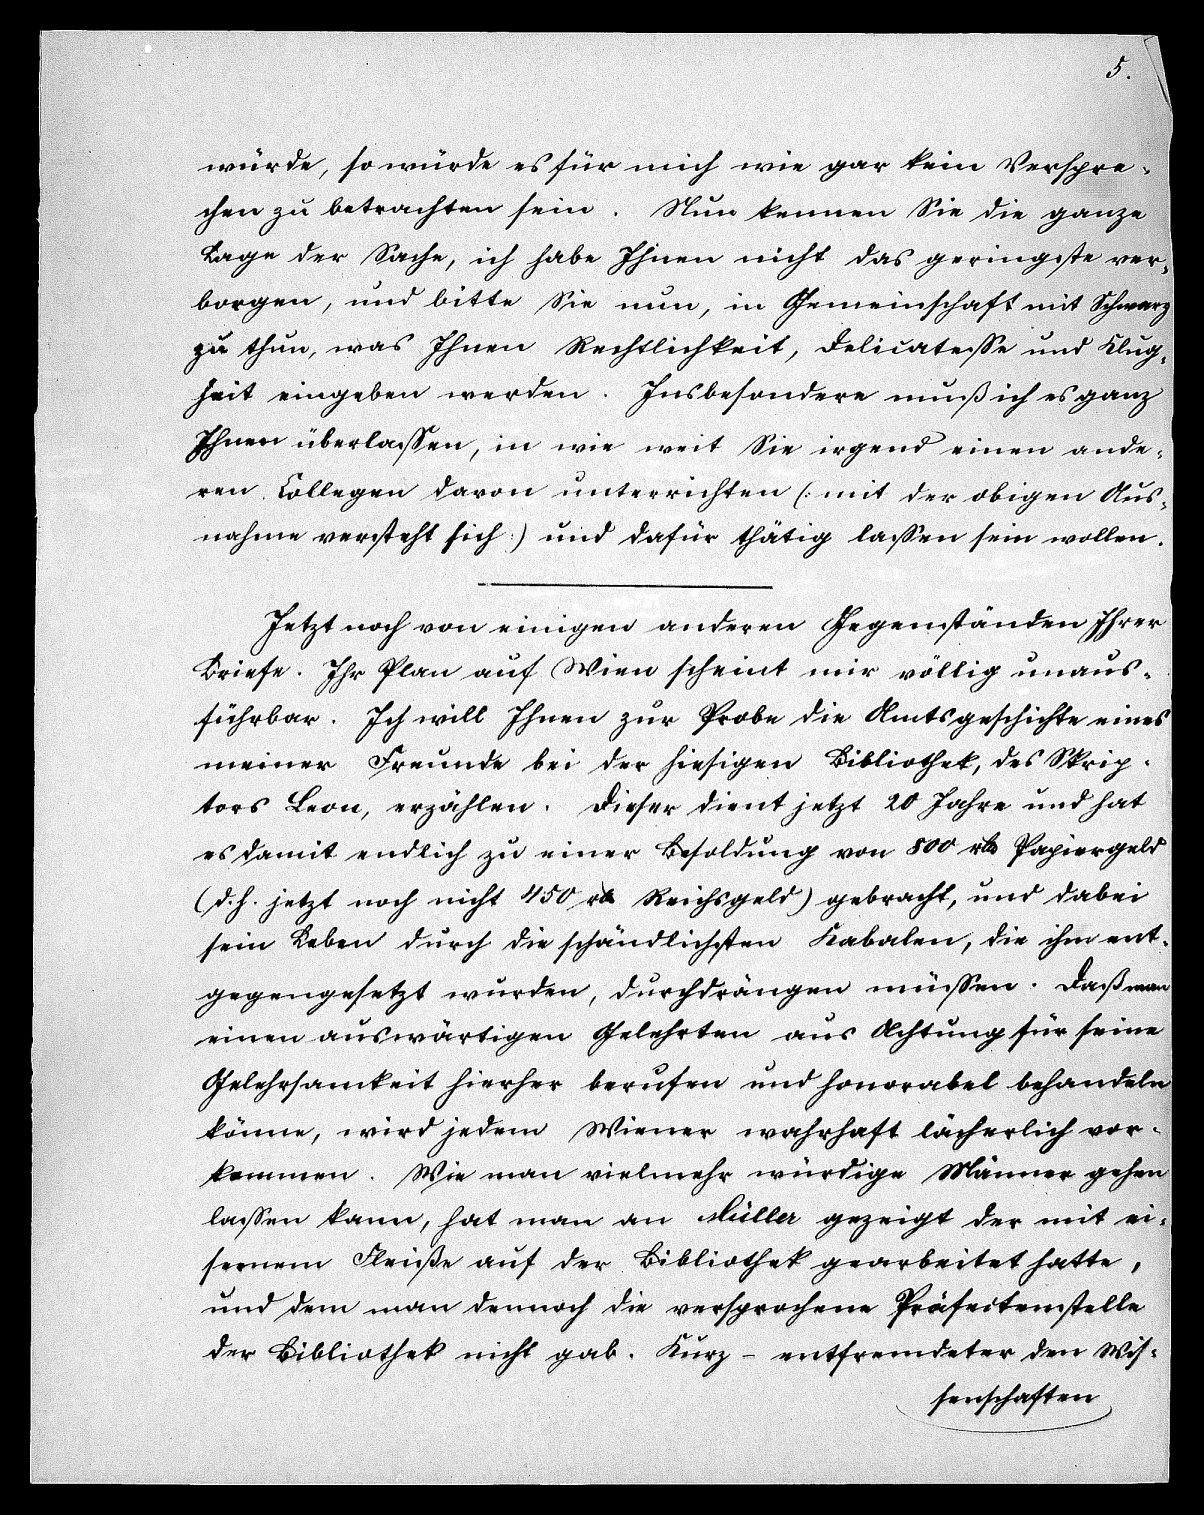 5.
würde, so würde es für mich wie gar kein Verspre-
chen zu betrachten sein. Nun kennen Sie die ganze
Lage der Sache, ich habe Ihnen nicht das geringste ver-
borgen, und bitte Sie nun, in Gemeinschaft mit Schwarz
zu thun, was Ihnen Rechtlichkeit, Delicatesse und Klug-
heit eingeben werden. Insbesondere muß ich es ganz
Ihnen überlassen, in wie weit Sie irgend einen ande-
ren Collegen davon unterrichten (: mit der obigen Aus-
nahme versteht sich :) und dafür thätig lassen sein wollen.
Jetzt noch von einigen anderen Gegenständen Ihrer
Briefe. Ihr Plan auf Wien scheint mir völlig unaus-
führbar. Ich will Ihnen zur Probe die Amtsgeschichte eines
meiner Freunde bei der hiesigen Bibliothek, des Skrip-
tors Leon, erzählen. Dieser dient jetzt 20 Jahre und hat
es damit endlich zu einer Besoldung von 800 rth Papiergeld
(d. h. jetzt noch nicht 450 rth Reichsgeld) gebracht, und dabei
sein Leben durch die schändlichsten Kabalen, die ihm ent-
gegengesetzt wurden, durchdrängen müssen. Daß man
einen auswärtigen Gelehrten aus Achtung für seine
Gelehrsamkeit hierher berufen und honorabel behandeln
könne, wird jedem Wiener wahrhaft lächerlich vor-
kommen. Wie man vielmehr würdige Männer gehen
lassen kann, hat man an Müller gezeigt der mit ei-
sernem Fleiße auf der Bibliothek gearbeitet hatte,
und dem man dennoch die versprochene Präfectenstelle
der Bibliothek nicht gab. Kurz - entfremdeter den Wis-
senschaften